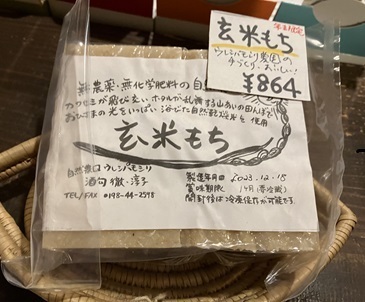 年末限定
玄米もち
ウレシパモシリ農園の
手づくり、おいしい！
¥864
無農薬・無化学肥料の自
カワセミが飛び交い ホタルが乱舞する山あいの田んぼで
おひさまの光をいっぱい浴びた自然乾燥米を使用
玄米もち
自然農園 ウレシパモシリ
酒匂 徹・淳子
TEL/FAX 0198-44-2598
製造年月日 2023.12.15
賞味期限 1ヶ月(要冷蔵)
開封後は冷凍保存が可能です。